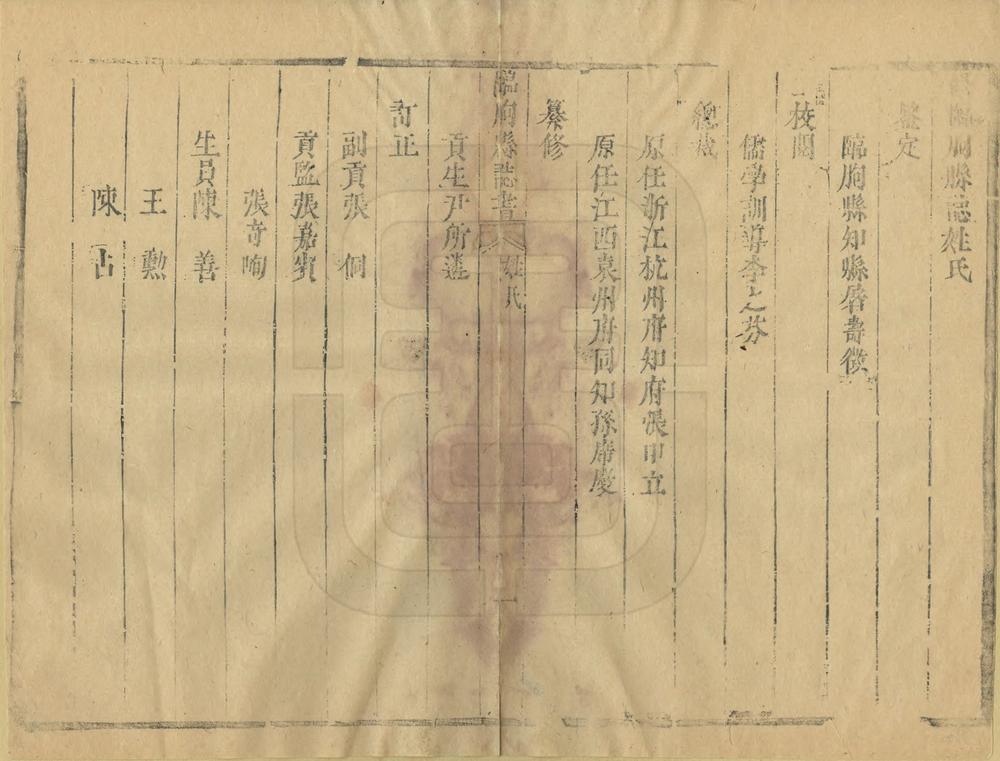 臨朐縣誌姓氏
鑒定
臨朐縣知縣屠壽徵
校閱
儒學訓導李之芬
總裁
原任浙江杭州府知府張印立
原任江西袁州府同知孫廕慶
纂修
臨朐縣誌書 姓氏 一
貢生尹所遴
訂正
副貢張侗
貢監張嘉賓
張奇峋
生員陳善
王勲
陳占